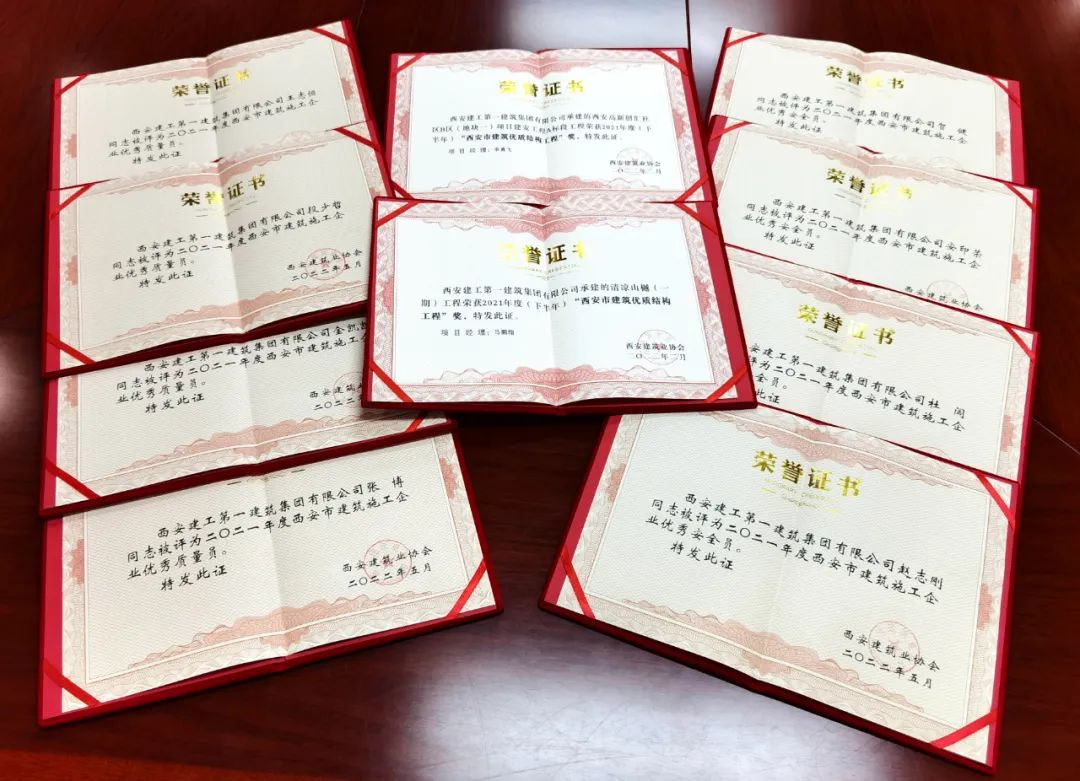 荣誉证书
西安建工第一建筑集团有限公司王志伯
同志被评为二〇二一年度西安市建筑施工企
业优秀质量员。
特发此证
荣誉证书
西安建工第一建筑集团有限公司段少哲
同志被评为二〇二一年度西安市建筑施工企
业优秀质量员。
特发此证
西安建筑业协会
二〇二二年五月
西安建工第一建筑集团有限公司金凯
同志被评为二〇二一年度西安市建筑施工企
业优秀质量员。
特发此证
西安建筑
二〇二二
西安建工第一建筑集团有限公司张 博
同志被评为二〇二一年度西安市建筑施工企
业优秀质量员。
特发此证
西安建筑业协会
二〇二二年五月
荣誉证书
西安建工第一建筑集团有限公司承建的西安高新创汇社
区B区(地块一)项目建安工程A标段工程荣获2021年度(下
半年)“西安市建筑优质结构工程”奖,特发此证。
项目经理:
西安建筑业协会
二〇二二年二月
荣誉证书
西安建工第一建筑集团有限公司承建的清凉山樾(一
期)工程荣获2021年度(下半年)“西安市建筑优质结构
工程”奖,特发此证。
项目经理:马鹏
西安建筑业协会
二〇二二年二月
荣誉证书
西安建工第一建筑集团有限公司贺 健
同志被评为二〇二一年度西安市建筑施工企
业优秀安全员。
特发此证
荣誉证书
西安建工第一建筑集团有限公司安印荣
同志被评为二〇二一年度西安市建筑施工企
业优秀安全员。
特发此证
西安建筑业协会
荣誉证书
安建工第一建筑集团有限公司杜 阔
评为二〇二一年度西安市建筑施工企
安全员。
此证
荣誉证书
西安建工第一建筑集团有限公司赵志刚
同志被评为二〇二一年度西安市建筑施工企
业优秀安全员。
特发此证
西安建筑业协会
二〇二二年五月